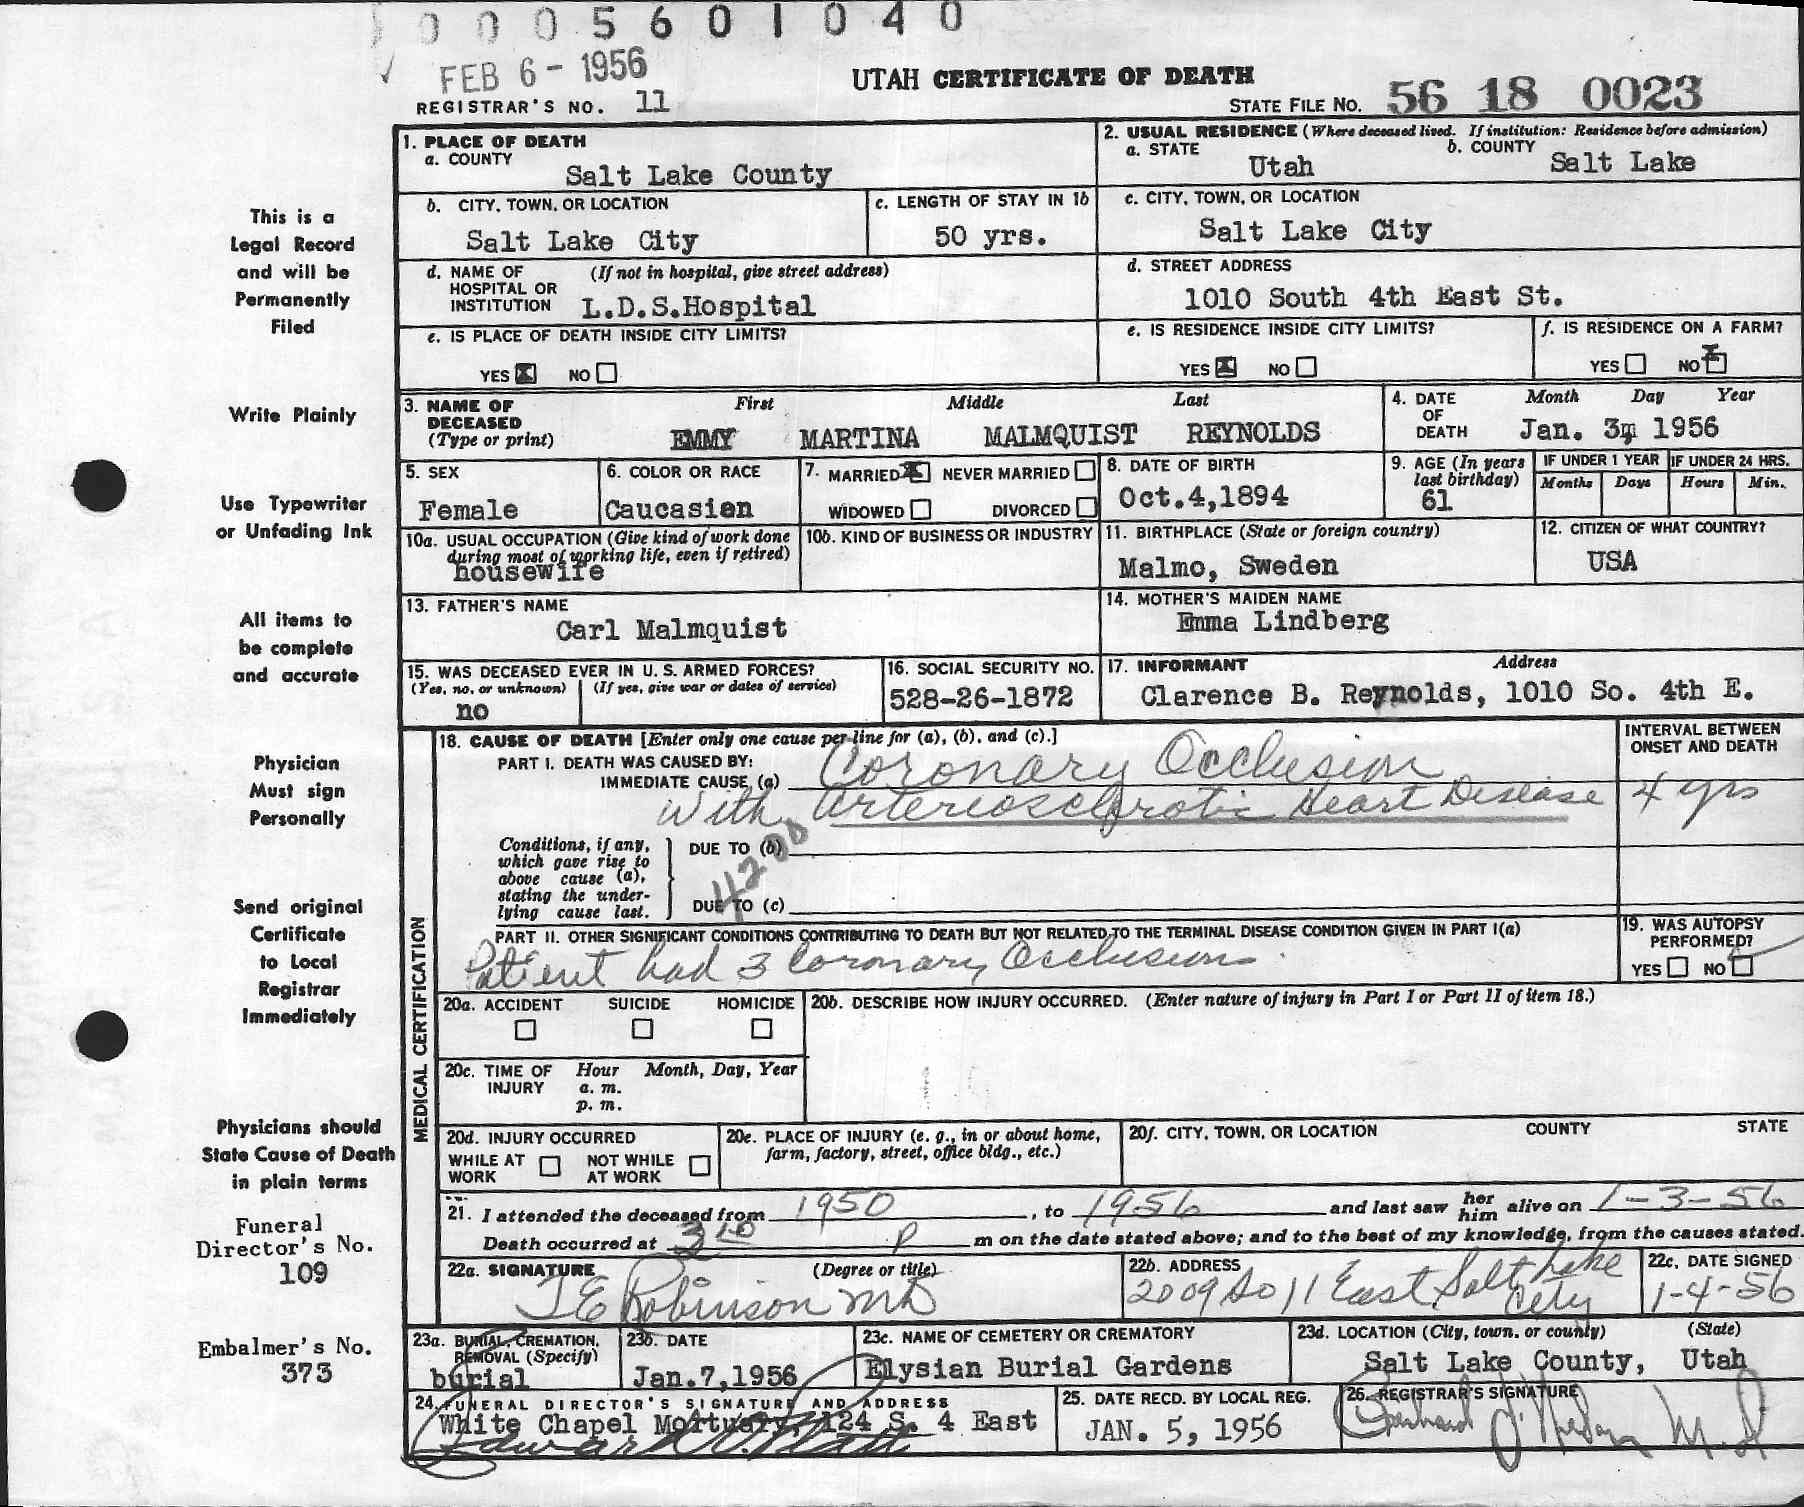 0 0 0 5 6 0 1 0 4 0
FEB 6 - 1956
UTAH CERTIFICATE OF DEATH
REGISTRAR'S NO. 11
STATE FILE NO. 56 18 0023
1. PLACE OF DEATH
a. COUNTY
Salt Lake County
2. USUAL RESIDENCE (Where deceased lived. If institution: Residence before admission)
a. STATE Utah
b. COUNTY Salt Lake
b. CITY, TOWN, OR LOCATION
Salt Lake City
c. LENGTH OF STAY IN 1b
50 yrs.
c. CITY, TOWN, OR LOCATION
Salt Lake City
d. NAME OF (If not in hospital, give street address)
HOSPITAL OR
INSTITUTION L.D.S.Hospital
d. STREET ADDRESS
1010 South 4th East St.
e. IS PLACE OF DEATH INSIDE CITY LIMITS?
YES X NO
e. IS RESIDENCE INSIDE CITY LIMITS?
YES X NO
f. IS RESIDENCE ON A FARM?
YES NO X
3. NAME OF First Middle Last
DECEASED
(Type or print) EMMY MARTINA MALMQUIST REYNOLDS
4. DATE Month Day Year
OF
DEATH Jan. 3, 1956
5. SEX
Female
6. COLOR OR RACE
Caucasian
7. MARRIED X NEVER MARRIED
WIDOWED DIVORCED
8. DATE OF BIRTH
Oct.4,1894
9. AGE (In years
last birthday)
61
IF UNDER 1 YEAR
Months Days
IF UNDER 24 HRS.
Hours Min.
10a. USUAL OCCUPATION (Give kind of work done
during most of working life, even if retired)
housewife
10b. KIND OF BUSINESS OR INDUSTRY
11. BIRTHPLACE (State or foreign country)
Malmo, Sweden
12. CITIZEN OF WHAT COUNTRY?
USA
13. FATHER'S NAME
Carl Malmquist
14. MOTHER'S MAIDEN NAME
Emma Lindberg
15. WAS DECEASED EVER IN U. S. ARMED FORCES?
(Yes, no, or unknown) (If yes, give war or dates of service)
no
16. SOCIAL SECURITY NO.
528-26-1872
17. INFORMANT Address
Clarence B. Reynolds, 1010 So. 4th E.
MEDICAL CERTIFICATION
18. CAUSE OF DEATH [Enter only one cause per line for (a), (b), and (c).]
INTERVAL BETWEEN
ONSET AND DEATH
PART I. DEATH WAS CAUSED BY:
IMMEDIATE CAUSE (a) Coronary Occlusion
With Arteriosclerotic Heart Disease 4 yrs
Conditions, if any,
which gave rise to
above cause (a),
stating the under-
lying cause last.
DUE TO (b)
4200
DUE TO (c)
PART II. OTHER SIGNIFICANT CONDITIONS CONTRIBUTING TO DEATH BUT NOT RELATED TO THE TERMINAL DISEASE CONDITION GIVEN IN PART I(a)
Patient had 3 Coronary Occlusions
19. WAS AUTOPSY
PERFORMED?
YES NO
20a. ACCIDENT SUICIDE HOMICIDE
20b. DESCRIBE HOW INJURY OCCURRED. (Enter nature of injury in Part I or Part II of item 18.)
20c. TIME OF Hour Month, Day, Year
INJURY a. m.
p. m.
20d. INJURY OCCURRED
WHILE AT NOT WHILE
WORK AT WORK
20e. PLACE OF INJURY (e. g., in or about home,
farm, factory, street, office bldg., etc.)
20f. CITY, TOWN, OR LOCATION COUNTY STATE
21. I attended the deceased from 1950, to 1956 and last saw her him alive on 1-3-56
Death occurred at 3 10 P m on the date stated above; and to the best of my knowledge, from the causes stated.
22a. SIGNATURE (Degree or title)
T E Robinson MD
22b. ADDRESS
2009 So 11 East Salt Lake
City
22c. DATE SIGNED
1-4-56
23a. BURIAL, CREMATION,
REMOVAL (Specify)
burial
23b. DATE
Jan.7,1956
23c. NAME OF CEMETERY OR CREMATORY
Elysian Burial Gardens
23d. LOCATION (City, town, or county) (State)
Salt Lake County, Utah
24. FUNERAL DIRECTOR'S SIGNATURE AND ADDRESS
White Chapel Mortuary, 124 S. 4 East
25. DATE RECD. BY LOCAL REG.
JAN. 5, 1956
26. REGISTRAR'S SIGNATURE
This is a
Legal Record
and will be
Permanently
Filed
Write Plainly
Use Typewriter
or Unfading Ink
All items to
be complete
and accurate
Physician
Must sign
Personally
Send original
Certificate
to Local
Registrar
Immediately
Physicians should
State Cause of Death
in plain terms
Funeral
Director's No.
109
Embalmer's No.
373